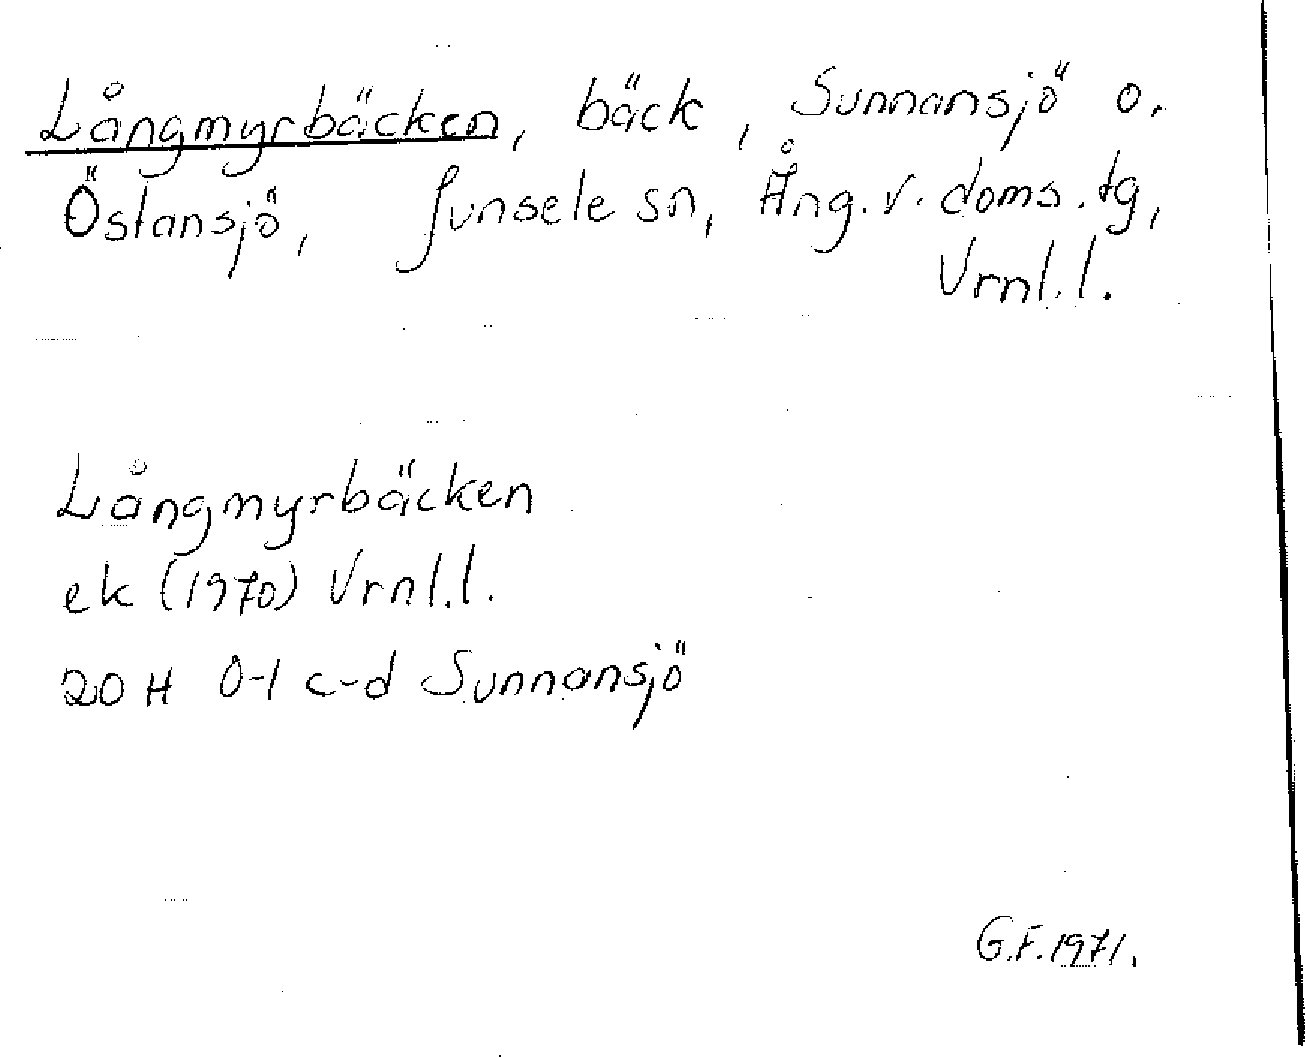 Långmyrbäcken, bäck, Sunnansjö o.
Östansjö, Junsele sn, Ång. v. doms. tg,
Vrnl. l.
Långmyrbäcken
ek (1970) Vrnl. l.
20 H 0-1 c-d Sunnansjö
G.F. 1971.